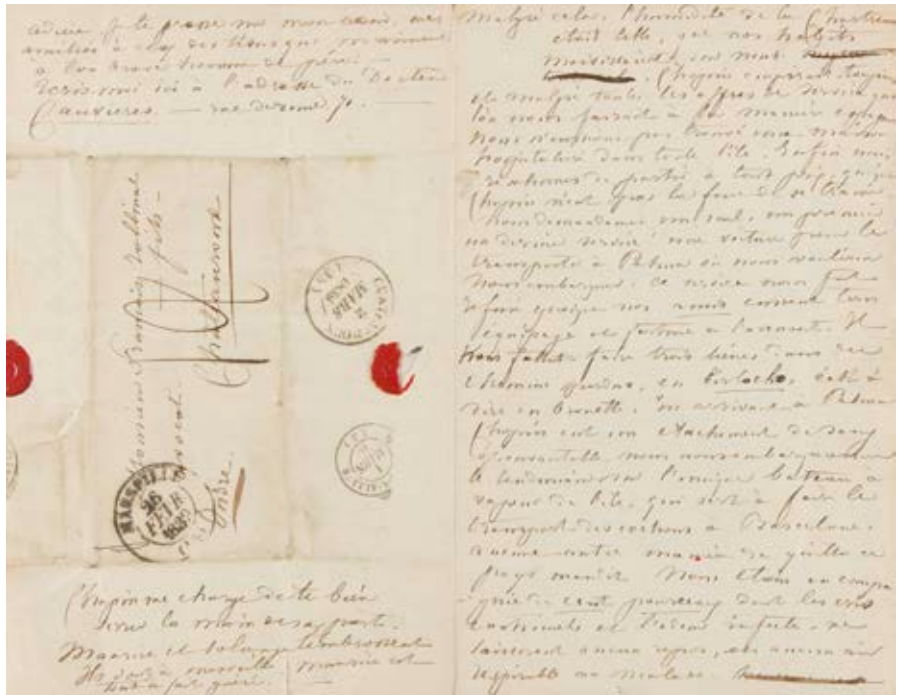 adieu je te presse sur mon cœur. mes
amitiés à
à ton brave homme de père.
Ecris-moi ici à l'adresse du Docteur
Cauvières. — rue de rome 71. —
Monsieur François Rollinat
fils —
avocat.
Châteauroux
Indre.
MARSEILLE
26
FEVR
1839
CHATEAUROUX
2
MARS
1839
Chopin me charge de te bien
serrer la main de sa part.
Maurice et Solange t'embrassent
Ils sont à merveille Maurice est
tout à fait guéri.
Malgré cela, l'humidité de la Chartreuse
était telle, que nos habits
moisissaient sur nous.
Chopin empirait toujours
et malgré toutes les offres de service que
l'on nous faisait à la manière espagnole
nous n'eussions pas trouvé une maison
hospitalière dans toute l'île. Enfin nous
résolûmes de partir à tout prix, quoique
Chopin n'eût pas la force de se traîner
Nous demandâmes un seul, un premier
un dernier service! une voiture pour le
transporter à Palma où nous voulions
nous embarquer. Ce service nous fut
refusé quoique nos amis eussent tous
équipage et fortune à l'avenant. Il
nous fallut faire trois lieues dans des
chemins perdus, en birlocho, c'est à
dire en brouette. En arrivant à Palma
Chopin eut un crachement de sang
épouvantable, nous nous embarquâmes
le lendemain sur l'unique bateau à
vapeur de l'île, qui sert à faire le
transport des cochons à Barcelone.
aucune autre manière de quitter ce
pays maudit. Nous étions en compa
gnie de cent pourceaux dont les cris
continuels et l'odeur infecte ne
laissèrent aucun repos, et aucun air
respirable au malade.